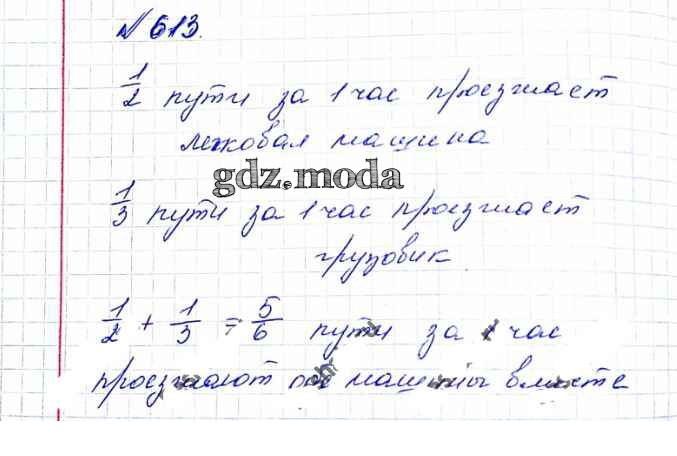 № 613.
1/2 пути за 1 час проезжает
легковая машина
gdz.moda
1/3 пути за 1 час проезжает
грузовик
1/2 + 1/3 = 5/6 пути за 1 час
проезжают машины вместе